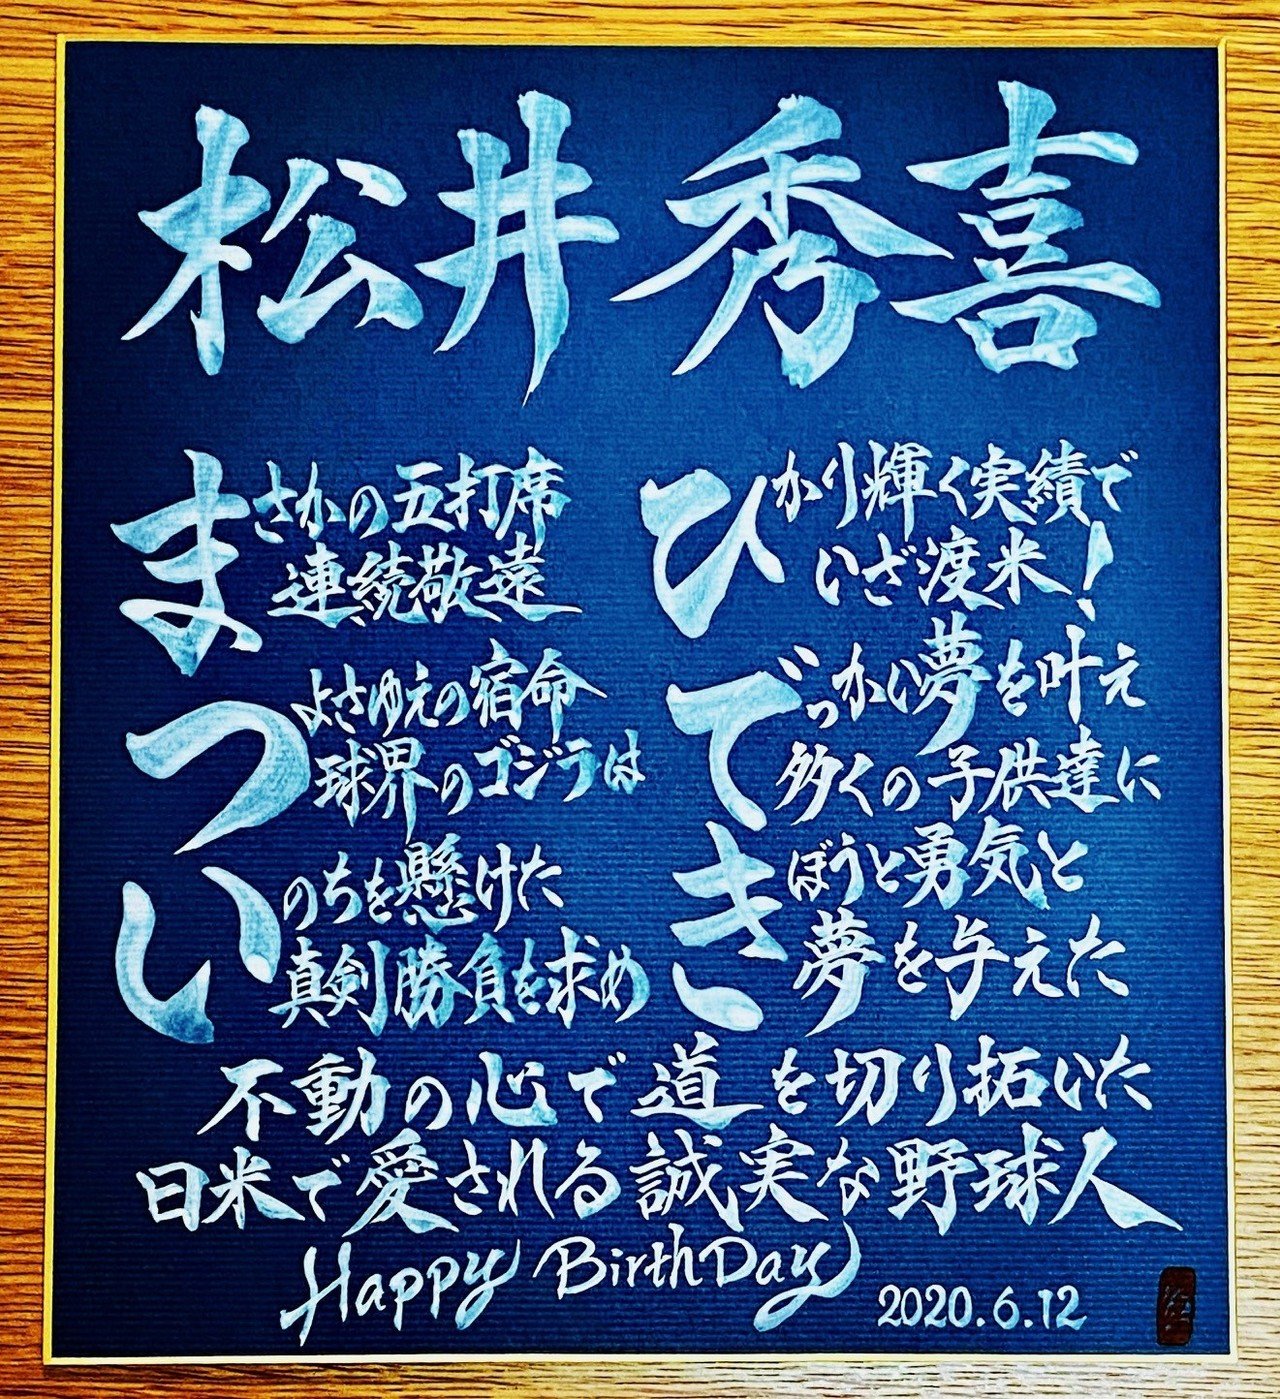 松井秀喜
まさかの五打席
連続敬遠
つよさゆえの宿命
球界のゴジラは
いのちを懸けた
真剣勝負を求め
ひかり輝く実績で
いざ渡米!
でっかい夢を叶え
多くの子供達に
きぼうと勇気と
夢を与えた
不動の心で道を切り拓いた
日米で愛される誠実な野球人
Happy BirthDay
2020.6.12